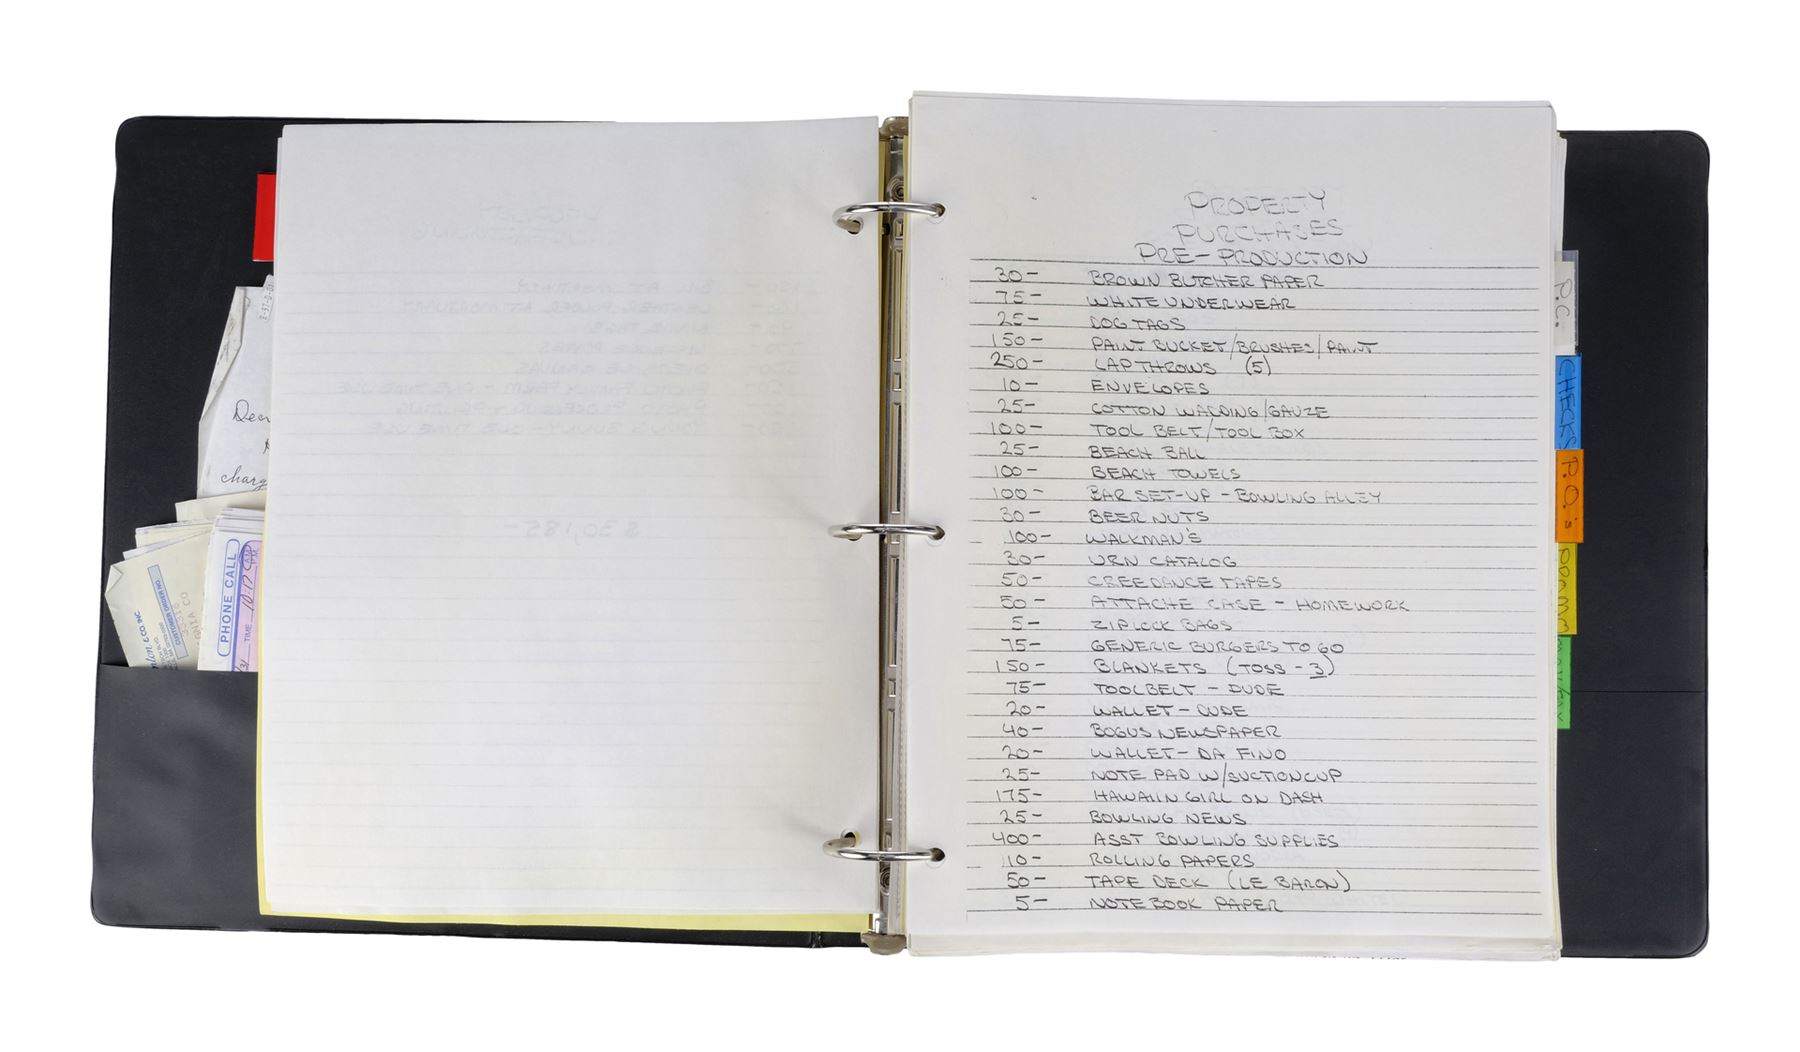 Dear
charg
PHONE CALL
TIME 10:17
CUSTOMER ORDER NO.
& CO. INC.
$30,185-
PROPERTY
PURCHASES
PRE-PRODUCTION
30- BROWN BUTCHER PAPER
75- WHITE UNDERWEAR
25- DOG TAGS
150- PAINT BUCKET/BRUSHES/PAINT
250- LAP THROWS (5)
10- ENVELOPES
25- COTTON WADDING/GAUZE
100- TOOL BELT/TOOL BOX
25- BEACH BALL
100- BEACH TOWELS
100- BAR SET-UP - BOWLING ALLEY
30- BEER NUTS
100- WALKMAN'S
30- URN CATALOG
50- CREEDANCE TAPES
50- ATTACHE CASE - HOMEWORK
5- ZIPLOCK BAGS
75- GENERIC BURGERS TO GO
150- BLANKETS (TOSS - 3)
75- TOOLBELT - DUDE
20- WALLET - DUDE
40- BOGUS NEWSPAPER
20- WALLET - DA FINO
25- NOTE PAD W/SUCTIONCUP
175- HAWAIIN GIRL ON DASH
25- BOWLING NEWS
400- ASST BOWLING SUPPLIES
10- ROLLING PAPERS
50- TAPE DECK (LE BARON)
5- NOTEBOOK PAPER
P.C.
CHECKS
P.O.'s